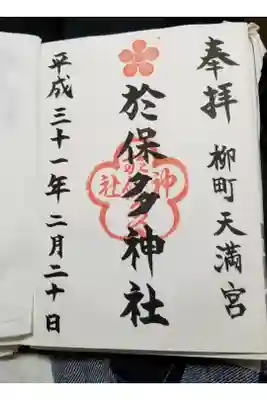 奉拝 柳町天満宮
於保多神社
平成三十一年二月二十日